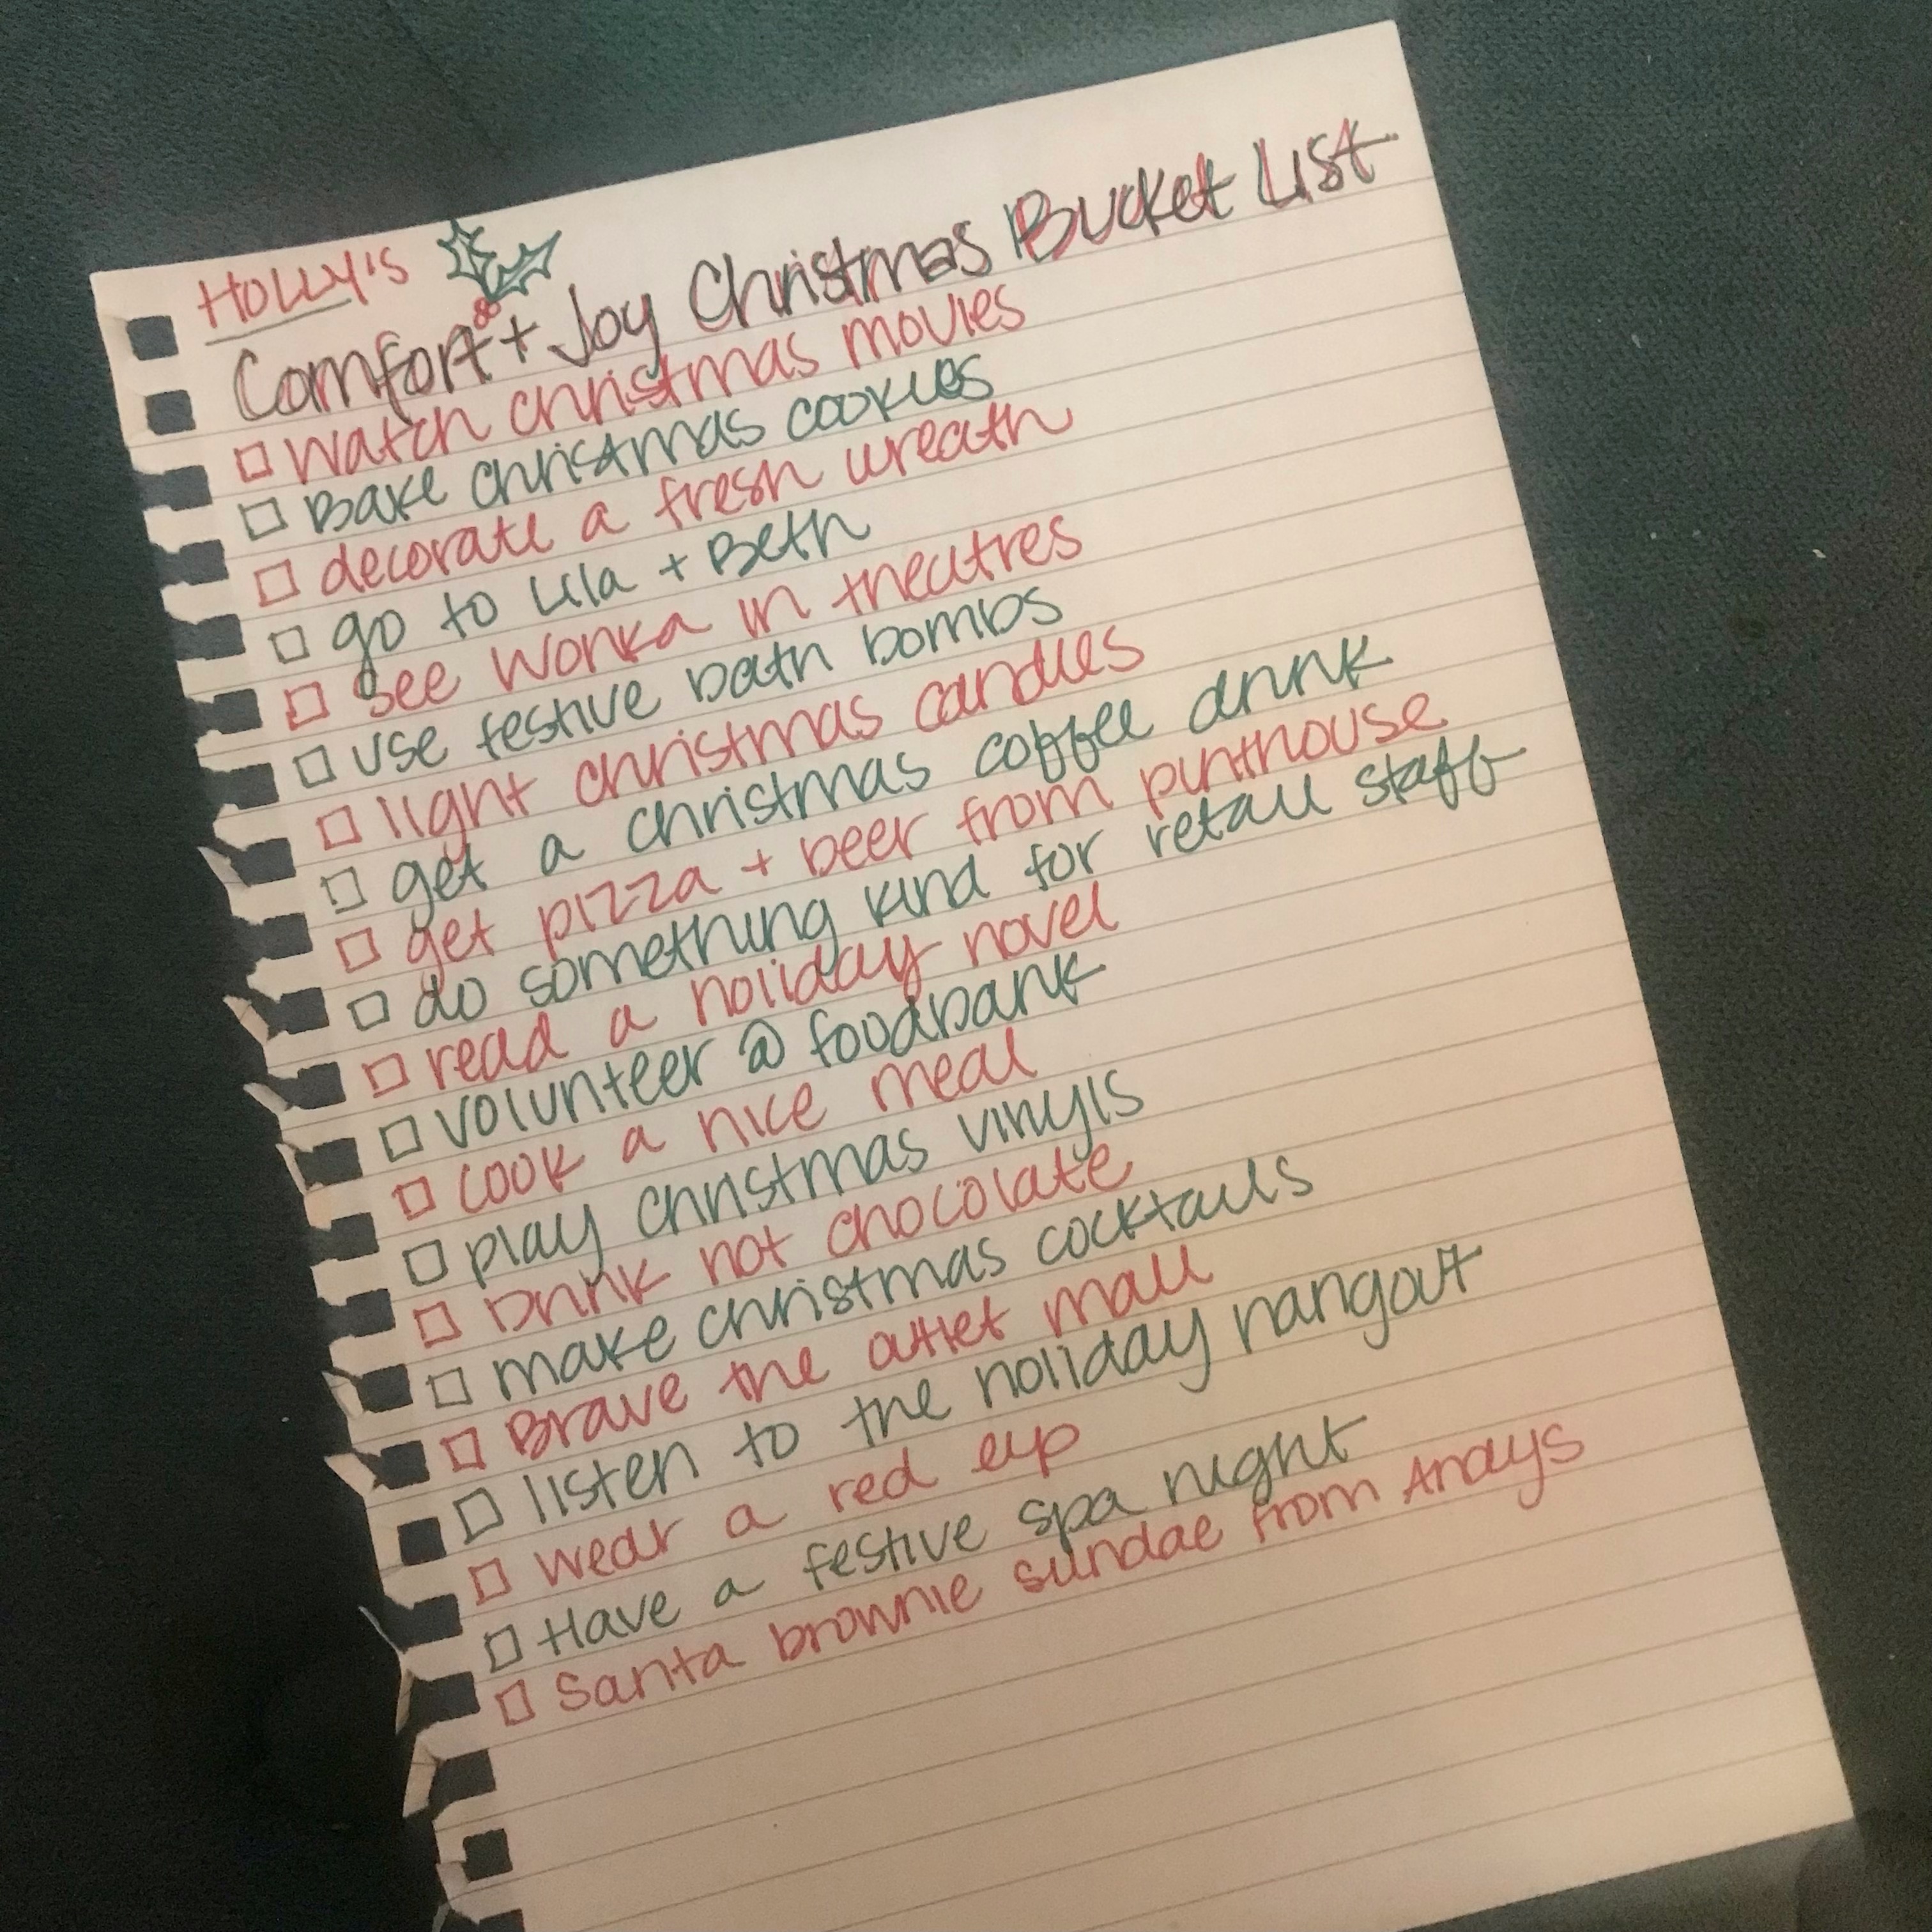 HOLLY'S
Comfort + Joy Christmas Bucket List
□ Watch christmas movies
□ Bake christmas cookies
□ decorate a fresh wreath
□ go to Lila + Beth
□ see Wonka in theatres
□ use festive bath bombs
□ light christmas candles
□ get a christmas coffee drink
□ get pizza + beer from pinthouse
□ do something kind for retail staff
□ read a holiday novel
□ volunteer @ foodbank
□ cook a nice meal
□ play christmas vinyls
□ Drink hot chocolate
□ make christmas cocktails
□ Brave the outlet mall
□ listen to the holiday hangout
□ wear a red lip
□ Have a festive spa night
□ Santa brownie sundae from Andys